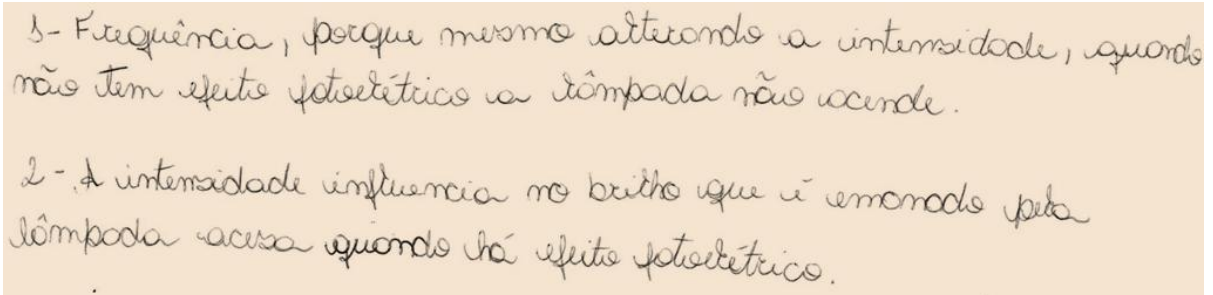 1- Frequência, porque mesmo alterando a intensidade, quando
não tem efeito fotoelétrico a lâmpada não acende.
2- A intensidade influencia no brilho que é emanado pela
lâmpada acesa quando há efeito fotoelétrico.